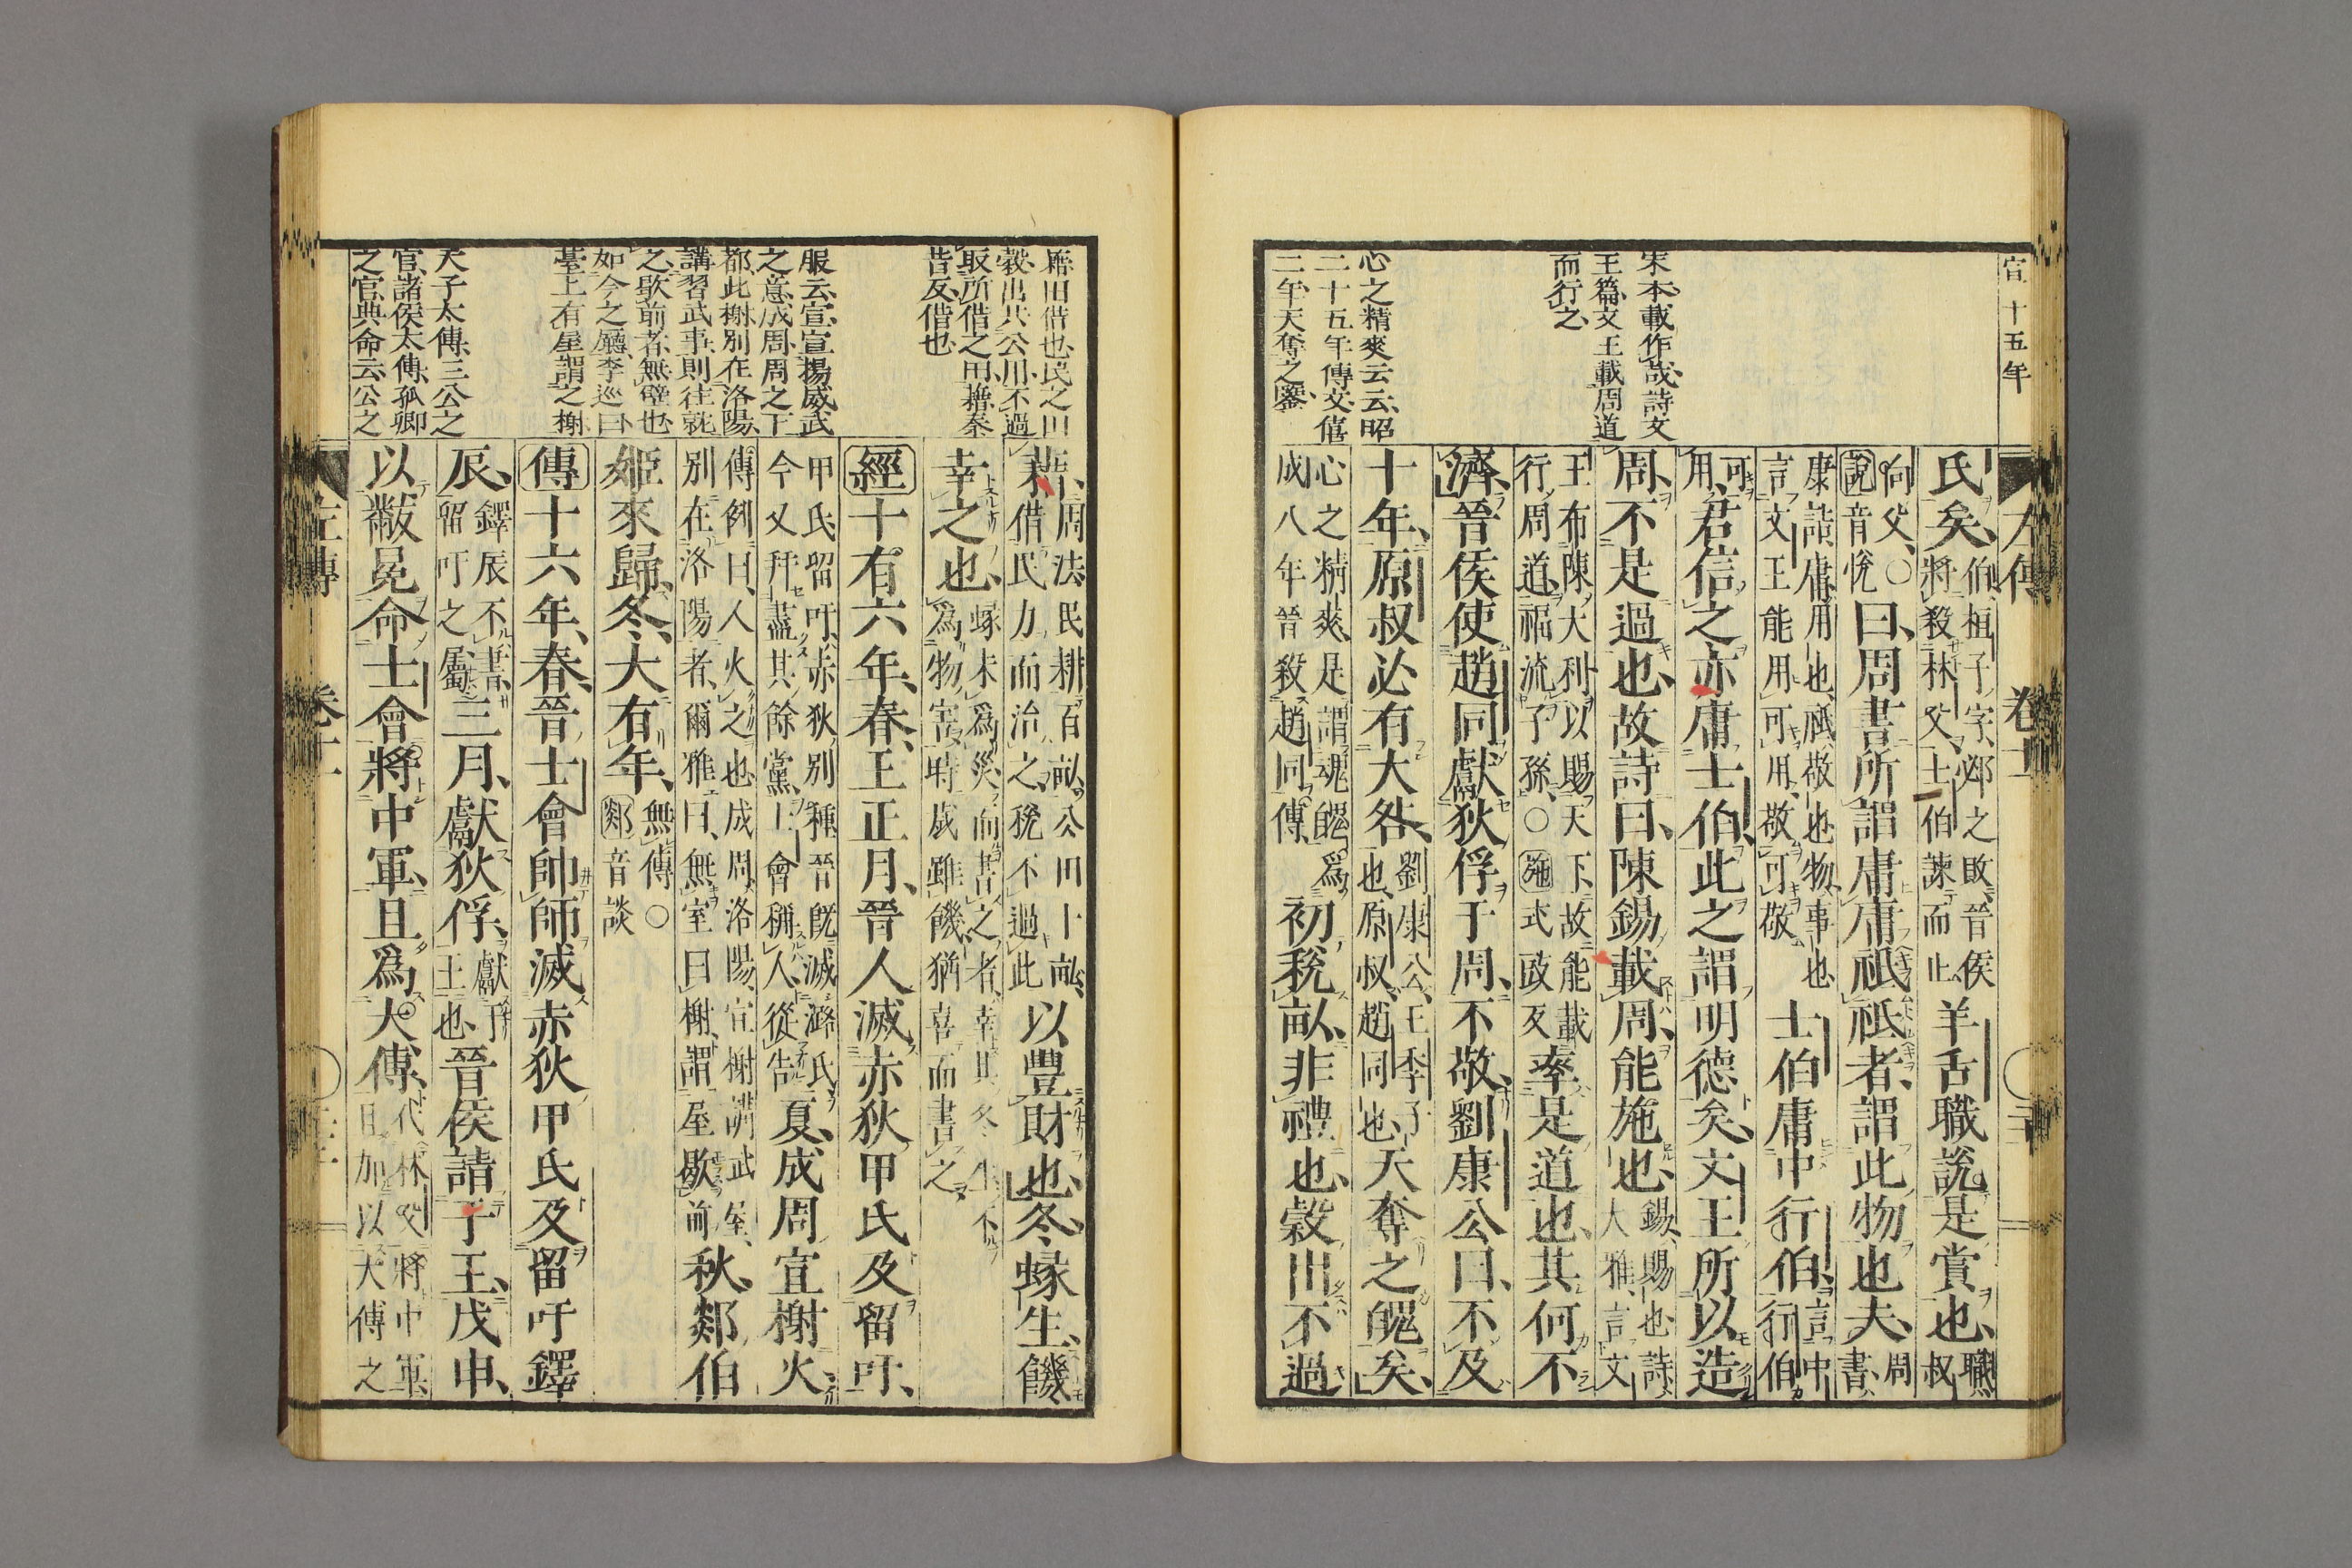 宣十五年
左傳 卷十一
宋本載作哉詩文
王篇文王載周道
而行之
心之精爽云云昭
二十五年傳文僖
二年天奪之鑒
氏矣、伯桓子字邲之敗晉侯將殺林父士伯諫而止羊舌職說是賞也、職叔
向父、○說音悅曰、周書所謂庸庸祗祗者、謂此物也夫、周書
康誥庸用也、祗敬也物事也言文王能用可用、敬可敬士伯庸中行伯、言中行伯
可用、君信之亦庸士伯、此之謂明德矣、文王所以造
周、不是過也、故詩曰、陳錫載周、能施也、錫賜也詩大雅言文
王布陳大利以賜天下故能載行周道福流子孫、○施式豉反率是道也、其何不
濟、晉侯使趙同獻狄俘于周、不敬、劉康公曰、不及
十年、原叔必有大咎、劉康公王季子也、原叔趙同也、天奪之魄矣、
心之精爽是謂魂魄爲成八年晉殺趙同傳初稅畝、非禮也、穀出不過
藉旧借也民之田
穀出共公田不過
取所借之田耤秦
昔反借也
服云宣宣揚威武
之意成周周之下
都此榭別在洛陽
講習武事則往就
之歇前者無壁也
如今之廳李巡曰
臺上有屋謂之榭
天子太傅三公之
官諸侯太傅孤卿
之官典命云公之
藉、周法民耕百畝公田十畝借民力而治之稅不過此以豐財也、冬蝝生、饑、
幸之也、蝝未爲災而書之者幸其冬生不爲物害時歲雖饑猶喜而書之
經十有六年、春、王正月、晉人滅赤狄甲氏及留吁、
甲氏留吁赤狄別種晉旣滅潞氏今又幷盡其餘黨士會稱人從告夏、成周宣榭火
傳例曰、人火之也成周洛陽宣榭講武屋別在洛陽者爾雅曰、無室曰榭謂屋歇前秋、郯伯
姬來歸、冬、大有年、無傳○郯音談
傳十六年、春、晉士會帥師滅赤狄甲氏及留吁鐸
辰、鐸辰不書留吁之屬三月、獻狄俘、獻于王也晉侯請于王、戊申、
以黻冕命士會將中軍、且爲大傅、代林父將中軍且加以大傅之
左傳 卷十一